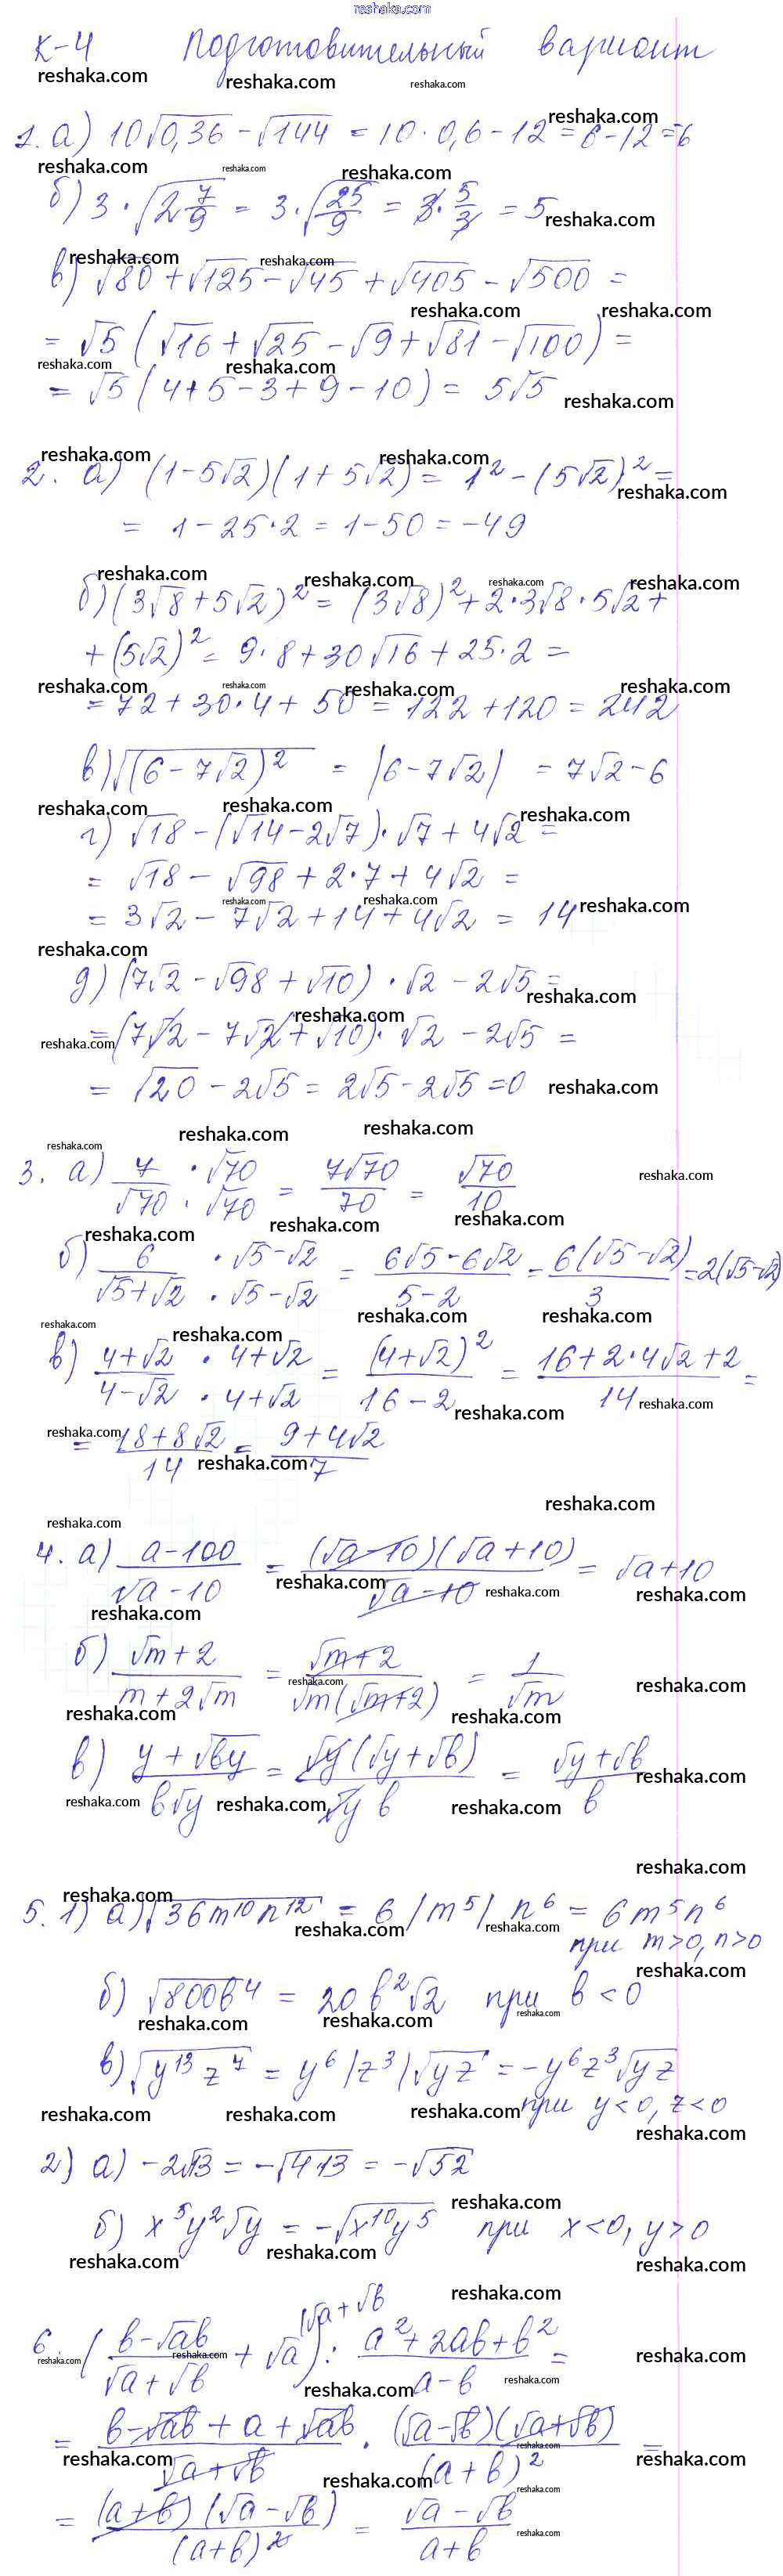 reshaka.com
К-4 Подготовительный вариант
1. а) 10√0,36 - √144 = 10 · 0,6 - 12 = 6 - 12 = -6
б) 3 · √(2 7/9) = 3 · √(25/9) = 3 · 5/3 = 5
в) √80 + √125 - √45 + √405 - √500 =
= √5 (√16 + √25 - √9 + √81 - √100) =
= √5 (4 + 5 - 3 + 9 - 10) = 5√5
2. а) (1 - 5√2)(1 + 5√2) = 1² - (5√2)² =
= 1 - 25 · 2 = 1 - 50 = -49
б) (3√8 + 5√2)² = (3√8)² + 2 · 3√8 · 5√2 +
+ (5√2)² = 9 · 8 + 30√16 + 25 · 2 =
= 72 + 30 · 4 + 50 = 122 + 120 = 242
в) √((6 - 7√2)²) = |6 - 7√2| = 7√2 - 6
г) √18 - (√14 - 2√7) · √7 + 4√2 =
= √18 - √98 + 2 · 7 + 4√2 =
= 3√2 - 7√2 + 14 + 4√2 = 14
д) (7√2 - √98 + √10) · √2 - 2√5 =
= (7√2 - 7√2 + √10) · √2 - 2√5 =
= √20 - 2√5 = 2√5 - 2√5 = 0
3. а) 7/√70 · √70/√70 = 7√70/70 = √70/10
б) 6/(√5+√2) · (√5-√2)/(√5-√2) = (6√5-6√2)/(5-2) = 6(√5-√2)/3 = 2(√5-√2)
в) (4+√2)/(4-√2) · (4+√2)/(4+√2) = (4+√2)²/(16-2) = (16+2·4√2+2)/14 =
= (18+8√2)/14 = (9+4√2)/7
4. а) (a-100)/(√a-10) = (√a-10)(√a+10)/(√a-10) = √a+10
б) (√m+2)/(m+2√m) = (√m+2)/(√m(√m+2)) = 1/√m
в) (y+√by)/(b√y) = √y(√y+√b)/(√y b) = (√y+√b)/b
5. 1) а) √(36m¹⁰n¹²) = 6|m⁵|n⁶ = 6m⁵n⁶
при m>0, n>0
б) √(800b⁴) = 20b²√2 при b<0
в) √(y¹³z⁷) = y⁶|z³|√yz = -y⁶z³√yz
при y<0, z<0
2) а) -2√13 = -√(4·13) = -√52
б) x⁵y²√y = -√(x¹⁰y⁵) при x<0, y>0
6. ((b-√ab)/(√a+√b) + √a (√a+√b)) : (a²+2ab+b²)/(a-b) =
= (b-√ab+a+√ab)/(√a+√b) · (√a-√b)(√a+√b)/(a+b)² =
= (a+b)(√a-√b)/(a+b)² = (√a-√b)/(a+b)